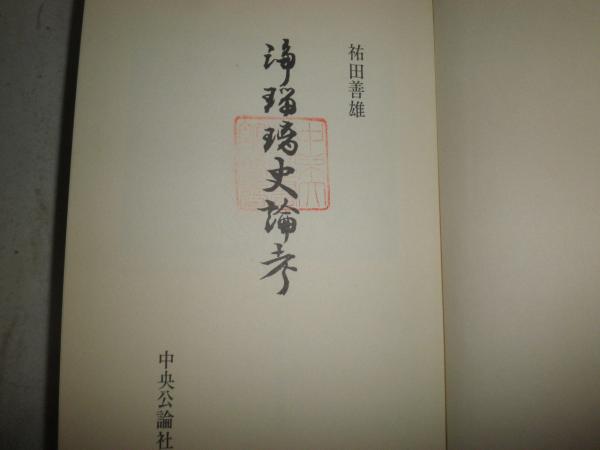 祐田善雄
浄瑠璃史論考
中央公論社